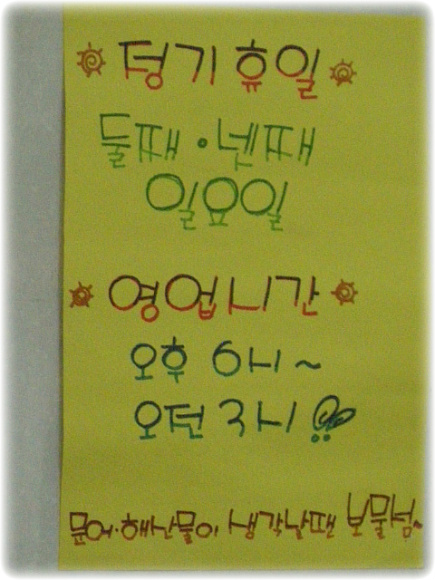 정기휴일
둘째·넷째
일요일
영업시간
오후 6시~
오전 3시!!
문어·해산물이 생각날땐 보물섬~